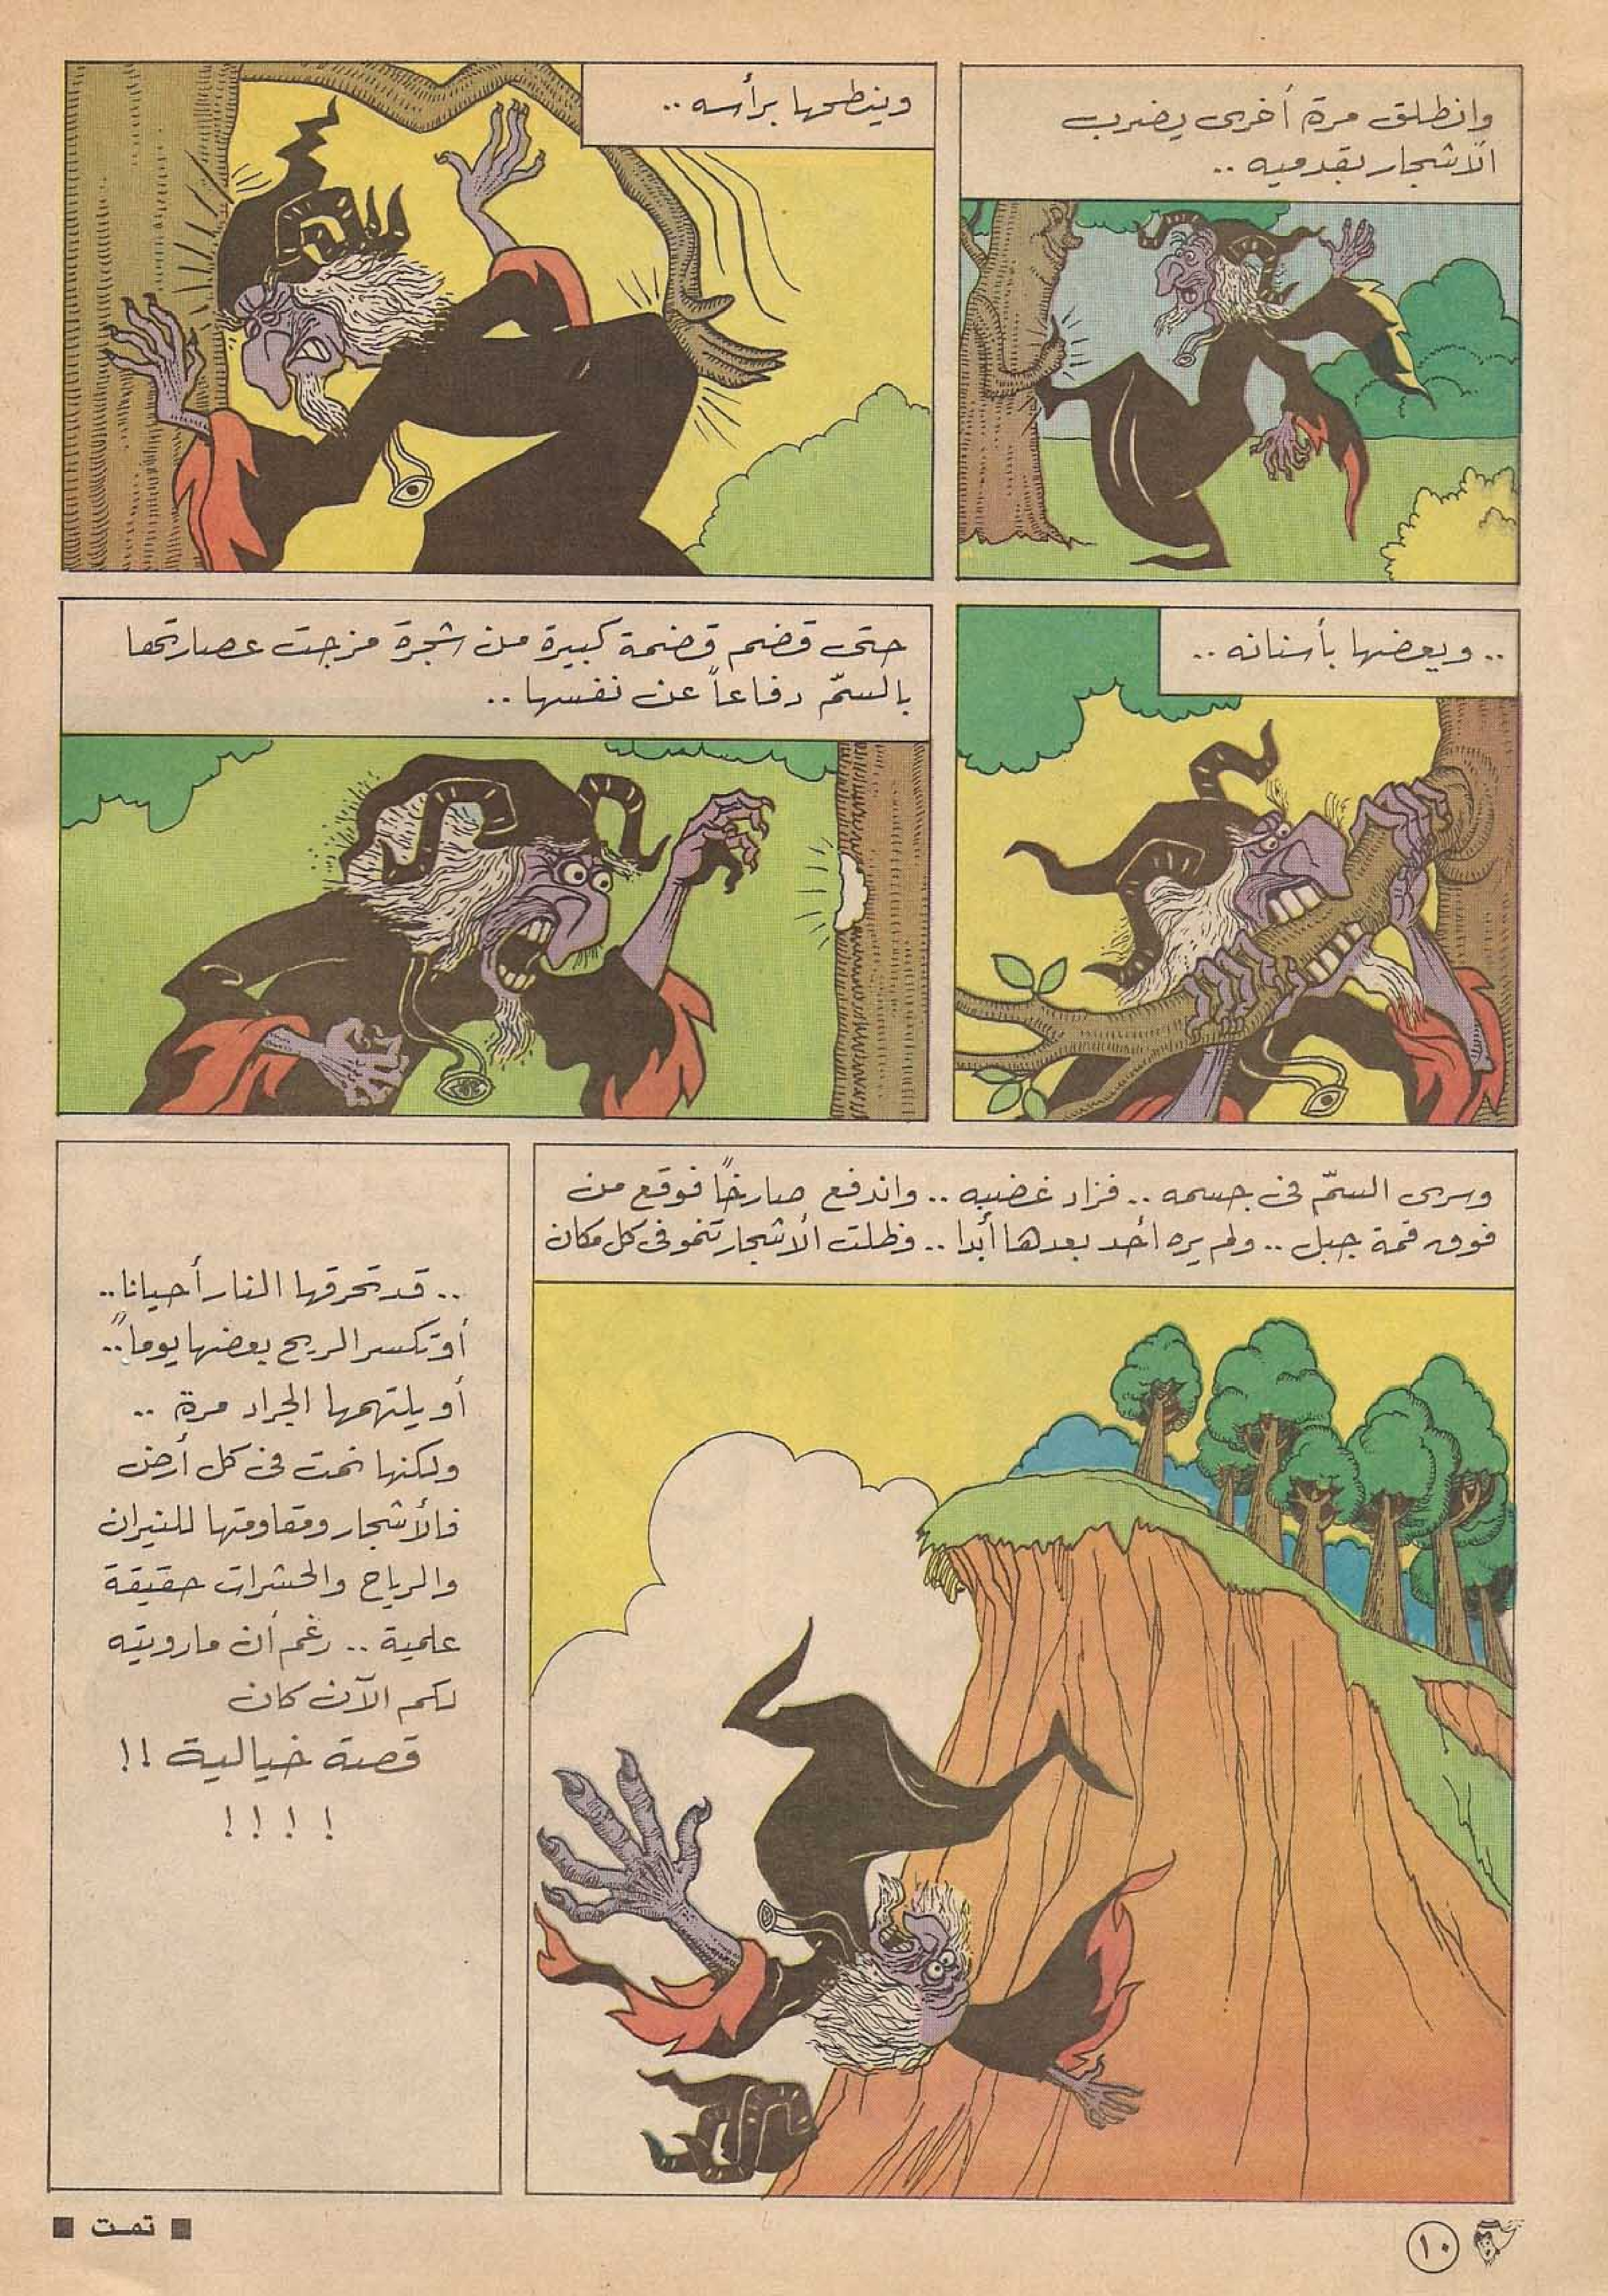 وانطلق مرة أخرى يضرب
الأشجار بقدميه ..
وينطحها برأسه ..
.. ويعضها بأسنانه ..
حتى قضم قضمة كبيرة من شجرة مزجت عصارتها
بالسمّ دفاعاً عن نفسها ..
وسرى السمّ فى جسمه .. فزاد غضبه .. واندفع صارخاً فوقع من
فوق قمة جبل .. ولم يره أحد بعدها أبدا .. وظلت الأشجار تنمو فى كل مكان
.. قد تحرقها النار أحيانا ..
أو تكسر الريح بعضها يوماً ..
أو يلتهمها الجراد مرة ..
ولكنها نمت فى كل أرض
فالأشجار ومقاومتها للنيران
والرياح والحشرات حقيقة
علمية .. رغم أن مارويته
لكم الآن كان
قصة خيالية !!
! ! ! !
■ تمت ■
١٠